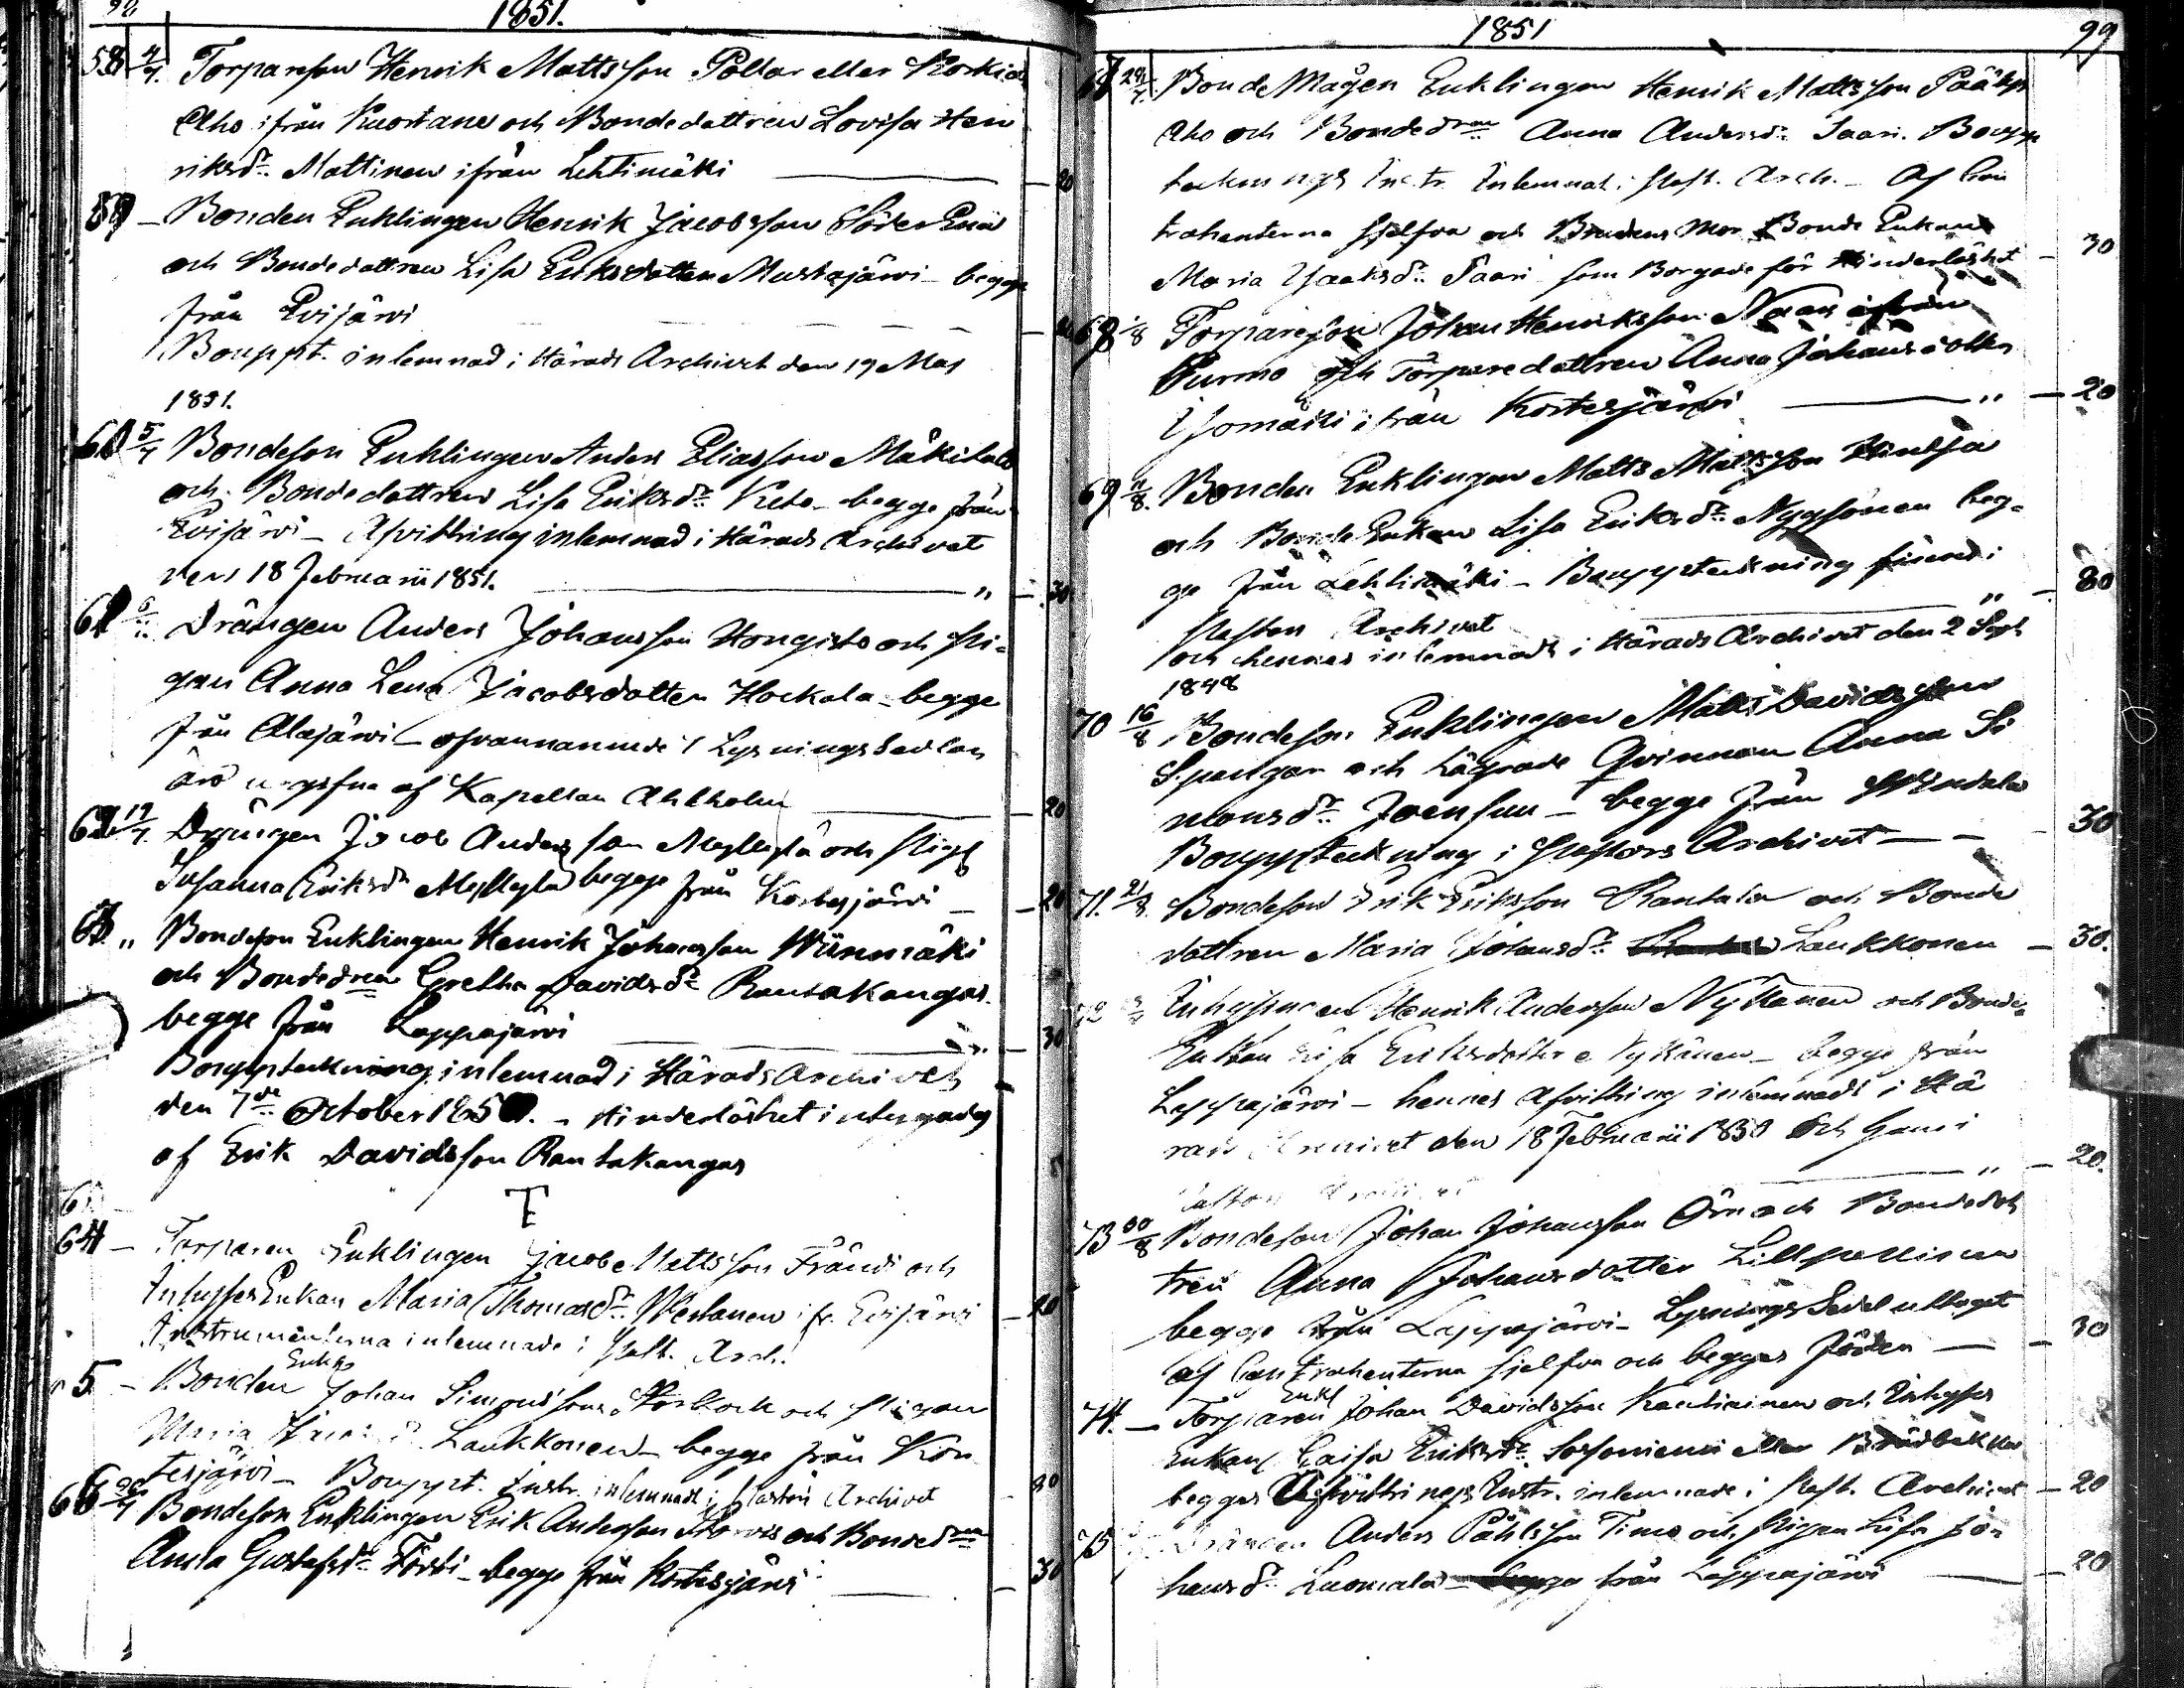 1851.
58 4/7. Torpareson Henrik Mattsson Pollar eller Korkia
Aho ifrån Kuortane och Bondedottren Lovisa Hen
riksdr. Mattinen ifrån Lehtimäki — 20
59 — Bonden Enklingen Henrik Jacobsson Söder Eniä
och Bondedottren Lisa Eriksdotter Mustajärvi - begge
från Evijärvi
Bouppt. inlemnad i Härads Archivet den 19 Maj
1851.
60 5/7 Bondeson Enklingen Anders Eliasson Mäkitalo
och Bondedottren Lisa Eriksdr. Keto - begge från
Evijärvi - Afvittring inlemnad i Härads Archivet
den 18 Februarii 1851. " — 30
61 Drängen Anders Johansson Hongisto och Pi-
gan Anna Lena Jacobsdotter Hockala - begge
från Alajärvi - ofvannämnde Lysningssedlar
äro utgifna af Kapellan Ahlholm — 20
62 17/7. Drängen Jacob Andersson Myllylä och Pigan
Susanna Eriksdr Myllylä begge från Kortesjärvi — 20
63. " Bondeson Enklingen Henrik Johansson Wiinmäki
och Bondedren Gretha Davidsdr Rantakangas
begge från Lappajärvi " — 30
Bouppteckning inlemnad i Härads Archivet
den 7de October 1850. - Hinderlöshet intygades
af Erik Davidsson Rantakangas
64 — Torparen Enklingen Jacob Mattsson Frändi och
InhysesEnkan Maria Thomasdr. Westanen ifr. Evijärvi — 20
Instrumenterna inlemnade i Past. Arch.
5 — Bonden Enkl Johan Simonsson Storbock och Pigan
Maria Laukkonen - begge från Kor
tesjärvi - Bouppt. Instr. inlemnadt i Pastors Archivet — 20
66 Bondeson Enklingen Erik Andersson och Bondedren
Anna Gustafsdr. Försti - begge från Kortesjärvi — 30
1851
99
BondeMågen Enklingen Henrik Mattsson Pääkös
Aho och Bondedren Anna Andersdr. Saari. Boupp
tecknings Instr. Inlemnat i Past. Arch. - Af Con
trahenterna sjelfva och Brudens Mor Bonde Enkan
Maria Isaksdr. Saari som Borgade för Hinderlöshet — 30
68 1/8 Torpareson Johan Henriksson Naas ifrån
Purmo och Torparedottren Anna Johansdotter
Isomäki ifrån Kortesjärvi " — 20
69 11/8. Bonden Enklingen Matts Mattsson Hintsa
och Bonde Enkan Lisa Eriksdr. Nygsönen beg-
ge från Lehtimäki - Bouppteckning finnes i
Pastors Archivet " — 80
och hennes inlemnadt i Härads Archivet den 2 Sept
1848
70 16/8 Bondeson Enklingen Matts Davidsson
Spangar och Lägrade Qvinnan Anna Si
monsdr. Joensuu - begge från Windala
Bouppteckning i Pastors Archivet — 30
71. 21/8. Bondeson Erik Eriksson Rantala och Bonde
dottren Maria Johansdr. Laukkonen — 30.
72 Inhysingen Henrik Andersson Nykänen och Bonde-
Enkan Lisa Eriksdotter Nykänen - begge från
Lappajärvi - hennes Afvittring inlemnadt i Hä
rads Archivet den 18 Februarii 1850 och hans i
Pastors Archivet " — 20.
73 30/8 Bondeson Johan Johansson Örn och Bondedot
tren Anna Johansdotter Lillpellinen
begge från Lappajärvi - Lysnings Sedel uttaget
af Contrahenterna sjelfva och begges Fäder — 30
74. — Torparen Enkl Johan Davidsson Kautiainen och Inhyses
Enkan Caisa Eriksdr. Sossoniemi eller Brådbacka
begges Afvittrings Instr. inlemnade i Past. Archivet — 20
75 Drängen Anders Påhlsson Timo och Pigan Lisa Jo-
hansdr Luomala - begge från Lappajärvi — 20